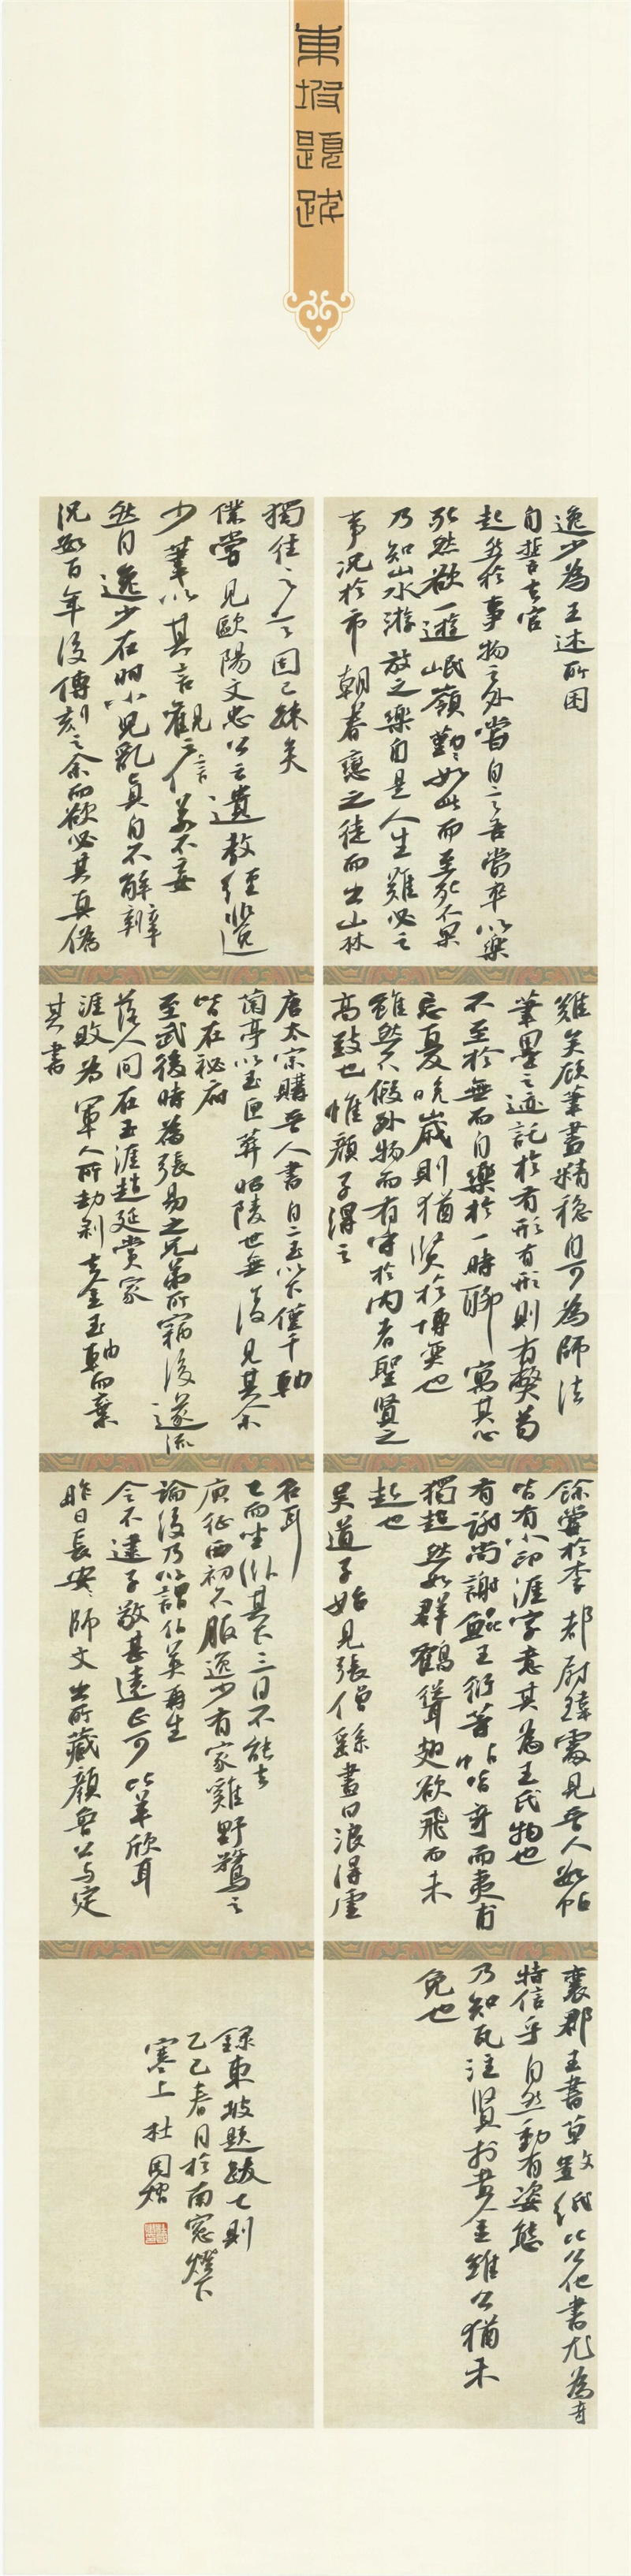 東坡題跋
逸少為王述所困
自誓去官
超然於事物之外嘗自言吾當卒以樂
死然欲一遊岷嶺勤勤如此而至死不果
乃知山水游放之樂自是人生難必之
事況於市朝眷戀之徒而出山林
獨往之言固已疎矣
僕嘗見歐陽文忠公云遺教經非逸
少筆以其言觀之信若不妄
然自逸少在時小兒亂真自不解辨
況數百年後傳刻之余而欲必其真偽
難矣顧筆畫精穩自可為師法
筆墨之迹託於有形有形則有弊苟
不至於無而自樂於一時聊寓其心
忘憂晚歲則猶賢於博奕也
雖然不假外物而有守於內者聖賢之
高致也惟顏子得之
唐太宗購晉人書自二王以下僅千軸
蘭亭以玉匣葬昭陵世無復見其余
皆在秘府
至武後時為張易之兄弟所竊後遂流
落人間在王涯張延賞家
涯敗為軍人所劫剝去金玉軸而棄
其書
餘嘗於李都尉瑋處見晉人數帖
皆有小印涯字意其為王氏物也
有謝尚謝鯤王衍等帖皆奇而夷甫
獨超然如群鶴聳翅欲飛而未
起也
吳道子始見張僧繇畫曰浪得虛
名耳
已而坐臥其下三日不能去
庾征西初不服逸少有家雞野鶩之
論後乃以謂伯英再生
今不逮子敬甚遠正可比羊欣耳
昨日長安安師文出所藏顏魯公與定
襄郡王書草數紙比公他書尤為奇
特信手自然動有姿態
乃知瓦注賢於黃金雖公猶未
免也
錄東坡題跋七則
乙巳春月於南窗燈下
塞上杜國